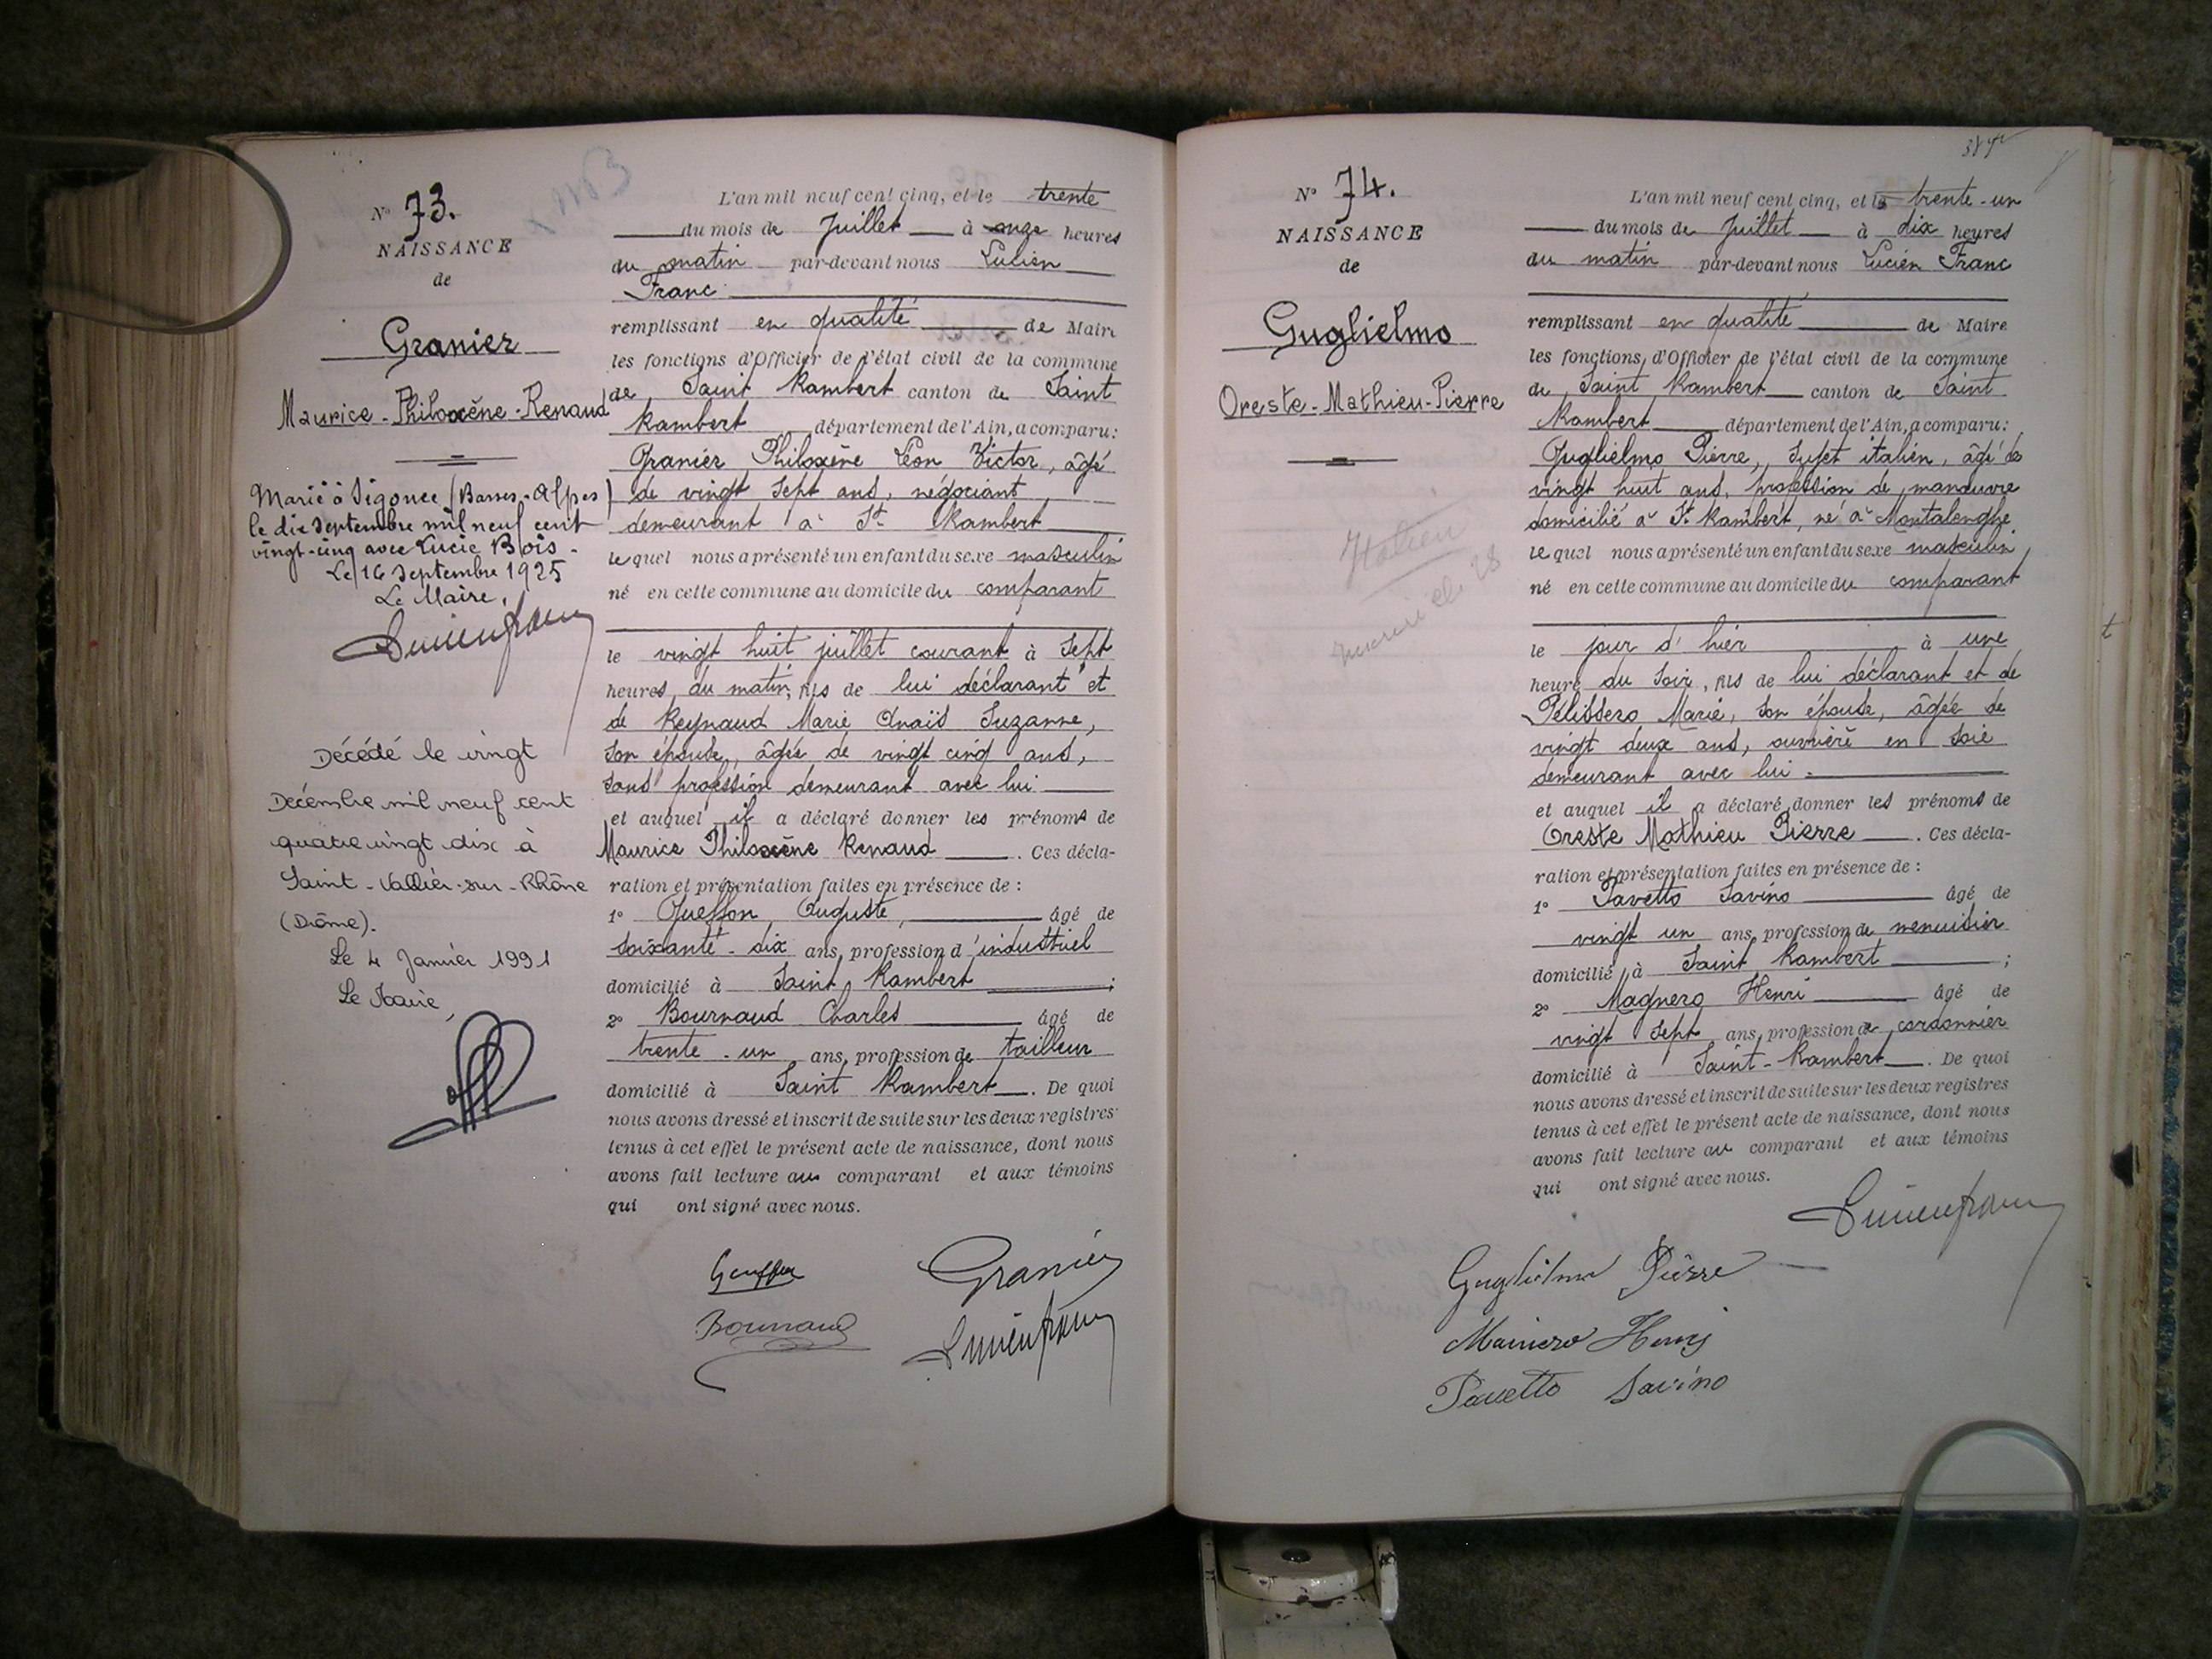 N° 73.
NAISSANCE
de
Granier
Maurice-Philoxène-Renaud
Marié à Sigonce (Basses-Alpes)
le dix septembre mil neuf cent
vingt-cinq avec Lucie Bois.
Le 16 Septembre 1925
Le Maire,
Lucien Franc
Décédé le vingt
Décembre mil neuf cent
quatre vingt dix à
Saint-Vallier-sur-Rhône
(Drôme).
Le 4 Janvier 1991
Le Maire,
L'an mil neuf cent cinq, et le trente
du mois de Juillet à onze heures
du matin par-devant nous Lucien
Franc
remplissant en qualité de Maire
les fonctions d'Officier de l'état civil de la commune
de Saint Rambert canton de Saint
Rambert département de l'Ain, a comparu:
Granier Philoxène Léon Victor, âgé
de vingt sept ans, négociant
demeurant à St Rambert
lequel nous a présenté un enfant du sexe masculin
né en cette commune au domicile du comparant
le vingt huit juillet courant à sept
heures du matin, fils de lui déclarant et
de Reynaud Marie Anaïs Suzanne,
son épouse, âgée de vingt cinq ans,
sans profession demeurant avec lui
et auquel il a déclaré donner les prénoms de
Maurice Philoxène Renaud . Ces décla-
ration et présentation faites en présence de :
1° Gueffon Auguste, âgé de
soixante-dix ans, profession d'industriel
domicilié à Saint Rambert ;
2° Bournaud Charles âgé de
trente-un ans, profession de tailleur
domicilié à Saint Rambert . De quoi
nous avons dressé et inscrit de suite sur les deux registres
tenus à cet effet le présent acte de naissance, dont nous
avons fait lecture au comparant et aux témoins
qui ont signé avec nous.
Granier
Bournaud Lucien Franc
N° 74.
NAISSANCE
de
Guglielmo
Oreste-Mathieu-Pierre
Italien
L'an mil neuf cent cinq, et le trente-un
du mois de Juillet à dix heures
du matin par-devant nous Lucien Franc
remplissant en qualité de Maire
les fonctions d'Officier de l'état civil de la commune
de Saint Rambert canton de Saint
Rambert département de l'Ain, a comparu:
Guglielmo Pierre, sujet italien, âgé de
vingt huit ans, profession de manœuvre
domicilié à St Rambert, né à Montalenghe
lequel nous a présenté un enfant du sexe masculin
né en cette commune au domicile du comparant
le jour d'hier à une
heure du soir, fils de lui déclarant et de
Pélissero Marie, son épouse, âgée de
vingt deux ans, ouvrière en soie
demeurant avec lui.
et auquel il a déclaré donner les prénoms de
Oreste Mathieu Pierre . Ces décla-
ration et présentation faites en présence de :
1° Pavetto Savino âgé de
vingt un ans, profession de menuisier
domicilié à Saint Rambert ;
2° Magnero Henri âgé de
vingt sept ans, profession de cordonnier
domicilié à Saint-Rambert . De quoi
nous avons dressé et inscrit de suite sur les deux registres
tenus à cet effet le présent acte de naissance, dont nous
avons fait lecture au comparant et aux témoins
qui ont signé avec nous.
Lucien Franc
Guglielmo Pierre
Mainero Henri
Pavetto Savino